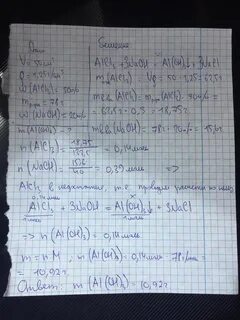 Дано Решение
V = 50 мл AlCl₃ + 3NaOH = Al(OH)₃↓ + 3NaCl
ρ = 1,25 г/мл m(AlCl₃) = Vρ = 50 · 1,25 = 62,5 г
ω(AlCl₃) = 30% m в-ва(AlCl₃) = m р-ра · 30% =
m р-ра = 78 г = 62,5 · 0,3 = 18,75 г
ω(NaOH) = 20% m в-ва(NaOH) = 78 г · 20% = 15,6 г
m(Al(OH)₃) - ?
n(AlCl₃) = 18,75 = 0,14 моль
n(NaOH) = 15,6 / 40 = 0,39 моль =>
AlCl₃ в недостатке, т.е. расчёт по нему
0,14 моль x
AlCl₃ + 3NaOH = Al(OH)₃↓ + 3NaCl
1 моль 1 моль
=> n(Al(OH)₃) = 0,14 моль
m = n · M, m(Al(OH)₃) = 0,14 моль · 78 г/моль =
= 10,92 г
Ответ: m(Al(OH)₃) = 10,92 г